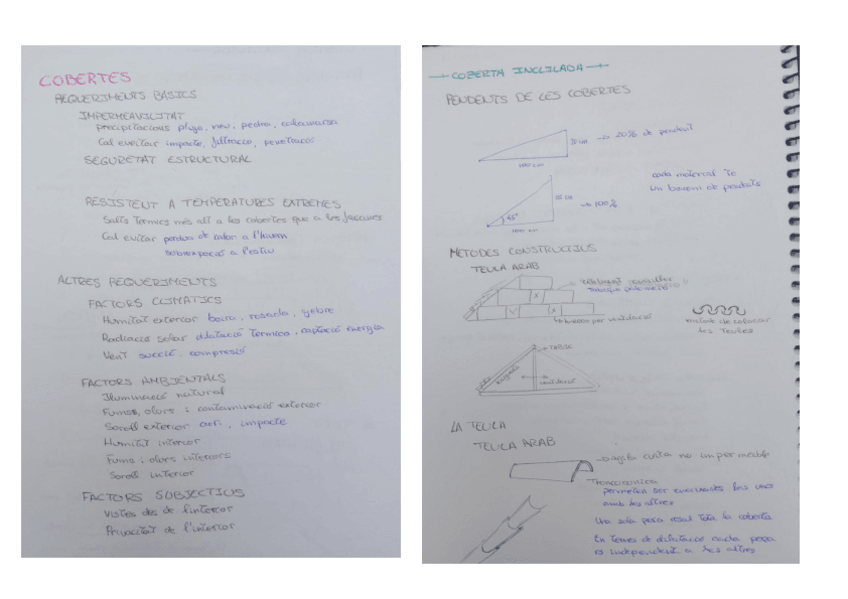 COBERTES
REQUERIMENTS BÀSICS
IMPERMEAVILITAT
precipitacions pluja, neu, pedra, calamarsa
Cal evitar impacte, filtració, penetració
SEGURETAT ESTRUCTURAL
RESISTENT A TEMPERATURES EXTREMES
Salts tèrmics més alt a les cobertes que a les façanes
Cal evitar perdua de calor a l'hivern
sobreexpació a l'estiu
ALTRES REQUERIMENTS
FACTORS CLIMATICS
Humitat exterior boira, rosada, gebre
Radiacio solar dilatació termica, captació energia
Vent succió, compresió
FACTORS AMBIENTALS
Iluminació natural
Fums, olors i contaminació exterior
Soroll exterior aeri, impacte
Humitat interior
Fums i olors interiors
Soroll interior
FACTORS SUBJECTIUS
Vistes des de l'interior
Privacitat de l'interior
COBERTA INCLILADA
PENDENTS DE LES COBERTES
20% de pendent
100 cm
cada material té
un barem de pendents
100%
45°
100 cm
METODES CONSTRUCTIUS
TEULA ARAB
ventilació
metode de colocar
les teules
LA TEULA
TEULA ARAB
argila cuita no impermeable
Troncoconica
permetes ser encaixades les unes
amb les altres
Una sola peça resol tota la coberta
En termes de dilatació cada peça
es independent a les altres